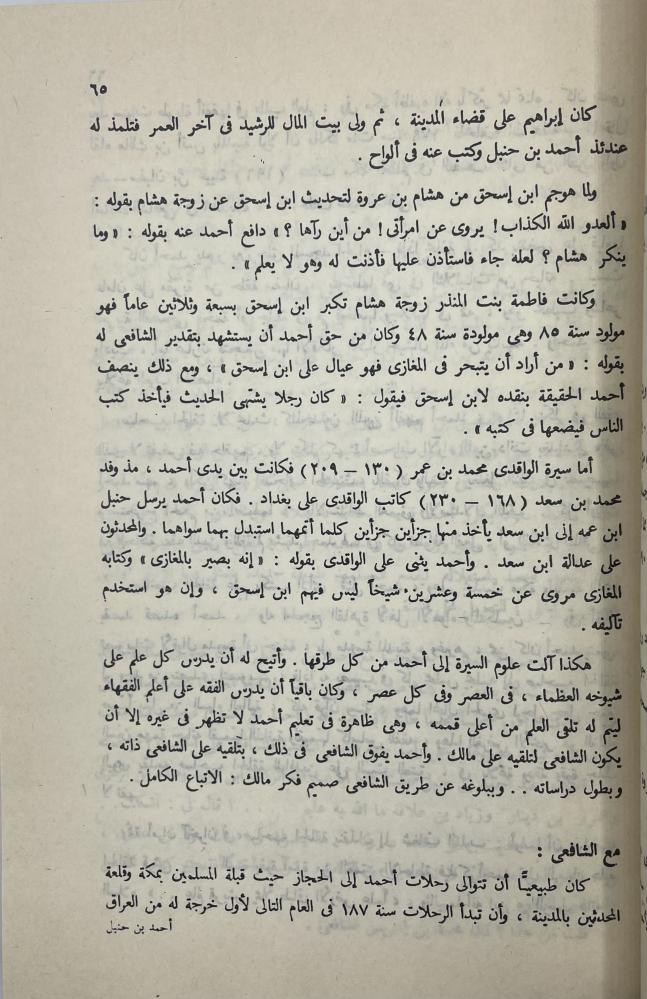 ٦٥
كان إبراهيم على قضاء المدينة ، ثم ولى بيت المال للرشيد فى آخر العمر فتلمذ له
عندئذ أحمد بن حنبل وكتب عنه فى ألواح .
ولما هوجم ابن إسحق من هشام بن عروة لتحديث ابن إسحق عن زوجة هشام بقوله :
« ألعدو الله الكذاب ! يروى عن امرأتى ! من أين رآها ؟ » دافع أحمد عنه بقوله : « وما
ينكر هشام ؟ لعله جاء فاستأذن عليها فأذنت له وهو لا يعلم » .
وكانت فاطمة بنت المنذر زوجة هشام تكبر ابن إسحق بسبعة وثلاثين عاماً فهو
مولود سنة ٨٥ وهى مولودة سنة ٤٨ وكان من حق أحمد أن يستشهد بتقدير الشافعى له
بقوله : « من أراد أن يتبحر فى المغازى فهو عيال على ابن إسحق » ، ومع ذلك ينصف
أحمد الحقيقة بنقده لابن إسحق فيقول : « كان رجلا يشتهى الحديث فيأخذ كتب
الناس فيضعها فى كتبه » .
أما سيرة الواقدى محمد بن عمر ( ١٣٠ – ٢٠٩ ) فكانت بين يدى أحمد ، مذ وفد
محمد بن سعد ( ١٦٨ – ٢٣٠ ) كاتب الواقدى على بغداد . فكان أحمد يرسل حنبل
ابن عمه إلى ابن سعد يأخذ منها جزأين جزأين كلما أتمهما استبدل بهما سواهما . والمحدثون
على عدالة ابن سعد . وأحمد يثنى على الواقدى بقوله : « إنه بصير بالمغازى » وكتابه
المغازى مروى عن خمسة وعشرين شيخاً ليس فيهم ابن إسحق ، وإن هو استخدم
تآليفه .
هكذا آلت علوم السيرة إلى أحمد من كل طرقها . وأتيح له أن يدرس كل علم على
شيوخه العظماء ، فى العصر وفى كل عصر ، وكان باقياً أن يدرس الفقه على أعلم الفقهاء
ليتم له تلقى العلم من أعلى قممه ، وهى ظاهرة فى تعليم أحمد لا تظهر فى غيره إلا أن
يكون الشافعى لتلقيه على مالك . وأحمد يفوق الشافعى فى ذلك ، بتلقيه على الشافعى ذاته ،
وبطول دراساته . . وببلوغه عن طريق الشافعى صميم فكر مالك : الاتباع الكامل .
مع الشافعى :
كان طبيعيًّا أن تتوالى رحلات أحمد إلى الحجاز حيث قبلة المسلمين بمكة وقلعة
المحدثين بالمدينة ، وأن تبدأ الرحلات سنة ١٨٧ فى العام التالى لأول خرجة له من العراق
أحمد بن حنبل